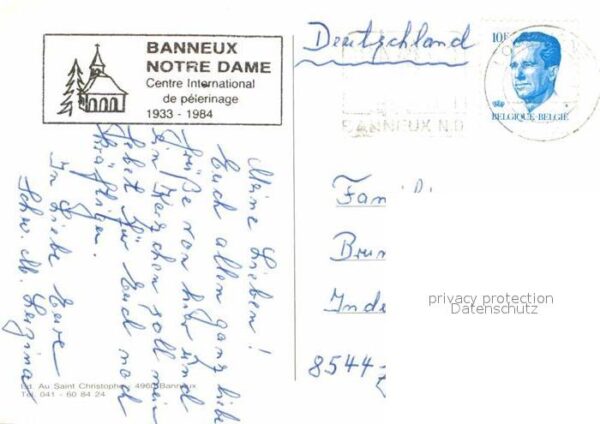 BANNEUX
NOTRE DAME
Centre International
de pélerinage
1933 - 1984
Meine Lieben!
Euch allen ganz liebe
Grüße von hier und
ein Kerzchen soll mein
Gebet für Euch noch
kräftigen.
In Liebe Eure
Schw. M. Luzina
Ed. Au Saint Christophe - 4960 Banneux
Tél. 041 - 60 84 24
Deutschland
10F
BELGIQUE-BELGIE
BANNEUX N.D
Fam
Brun
In de
8544
privacy protection
Datenschutz